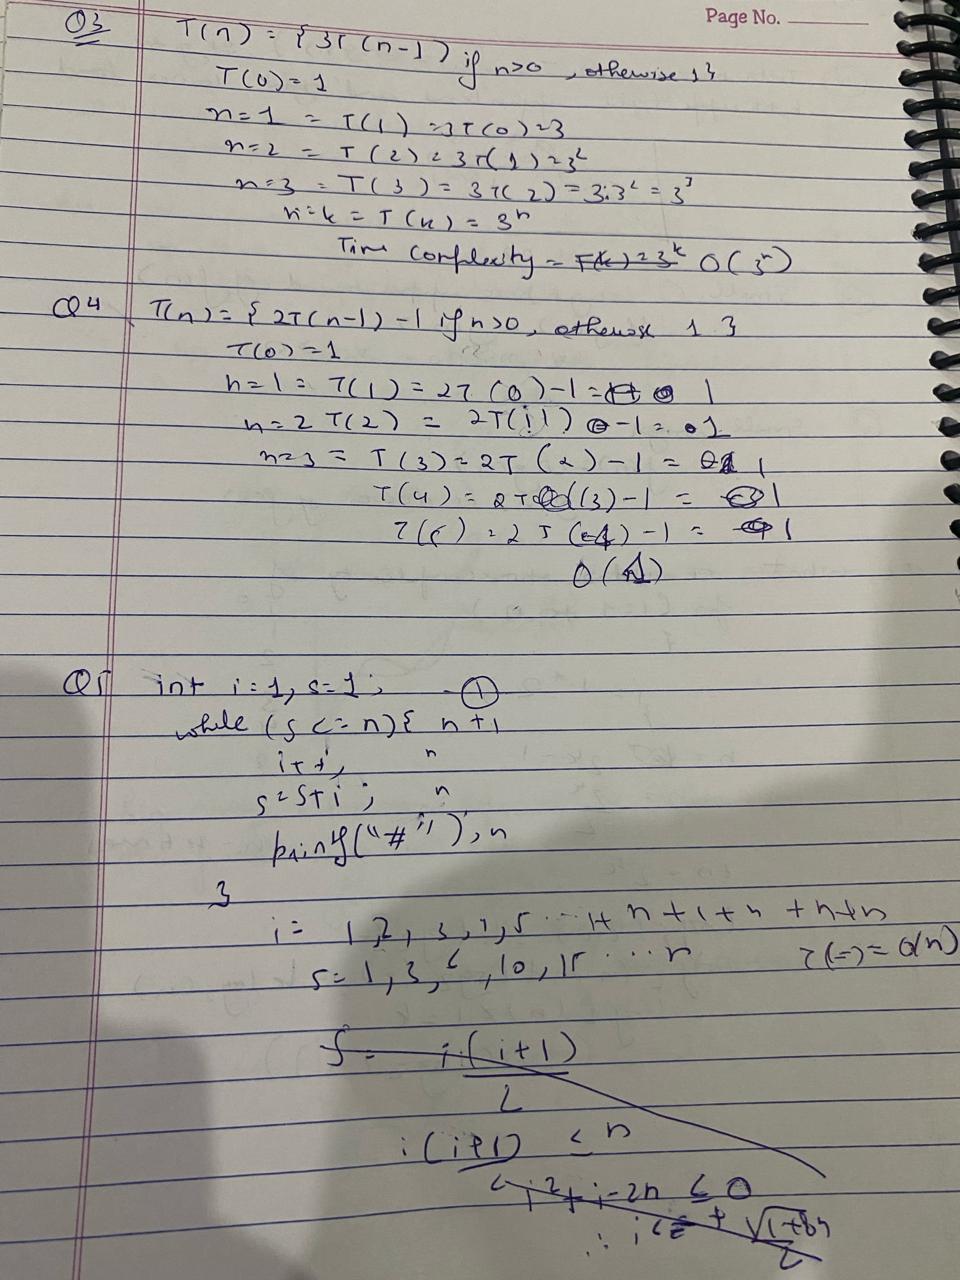 Page No.
Q3 T(n) = { 3T(n-1) if n>0, otherwise 1 }
T(0) = 1
n=1 = T(1) = 3T(0) = 3
n=2 = T(2) = 3T(1) = 3²
n=3 = T(3) = 3T(2) = 3·3² = 3³
n=k = T(k) = 3ⁿ
Time Complexity = T(k) = 3ᵏ O(3ⁿ)
Q4 T(n) = { 2T(n-1) - 1 if n>0, otherwise 1 }
T(0) = 1
n=1 = T(1) = 2T(0) - 1 = 1
n=2 T(2) = 2T(1) - 1 = 1
n=3 = T(3) = 2T(2) - 1 = 1
T(4) = 2T(3) - 1 = 1
T(5) = 2T(4) - 1 = 1
O(1)
Q5 int i=1, s=1; ①
while (s <= n){ n+1
i++; n
s=s+i; n
printf("#"); n
}
i= 1, 2, 3, 4, 5 ... 1+n+1+n+n+n
s= 1, 3, 6, 10, 15 ... n T(n) = O(n)
s = i(i+1)
2
i(i+1) ≤ n
2 i²+i-2n ≤ 0
∴ i <= + √1+8n
2